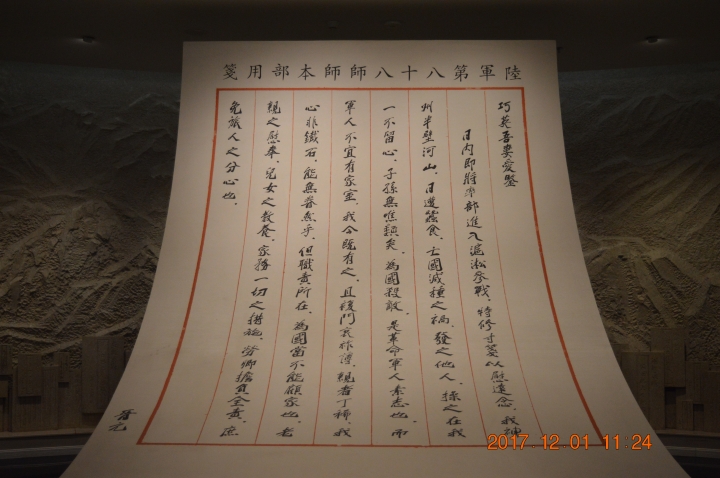 陸軍第八十八師師本部用箋
巧英吾妻愛鑒
日內即將率部進入滬淞參戰，特修寸箋以慰遠念。我神
州半壁河山，日遭蠶食，亡國滅種之禍，發之他人，操之在我
一不留心，子孫無噍類矣。為國殺敵，是革命軍人素志也，而
軍人不宜有家室，我今既有之，且復門衰祚薄，親者丁稀，我
心非鐵石，能無眷然乎，但職責所在，為國當不能顧家也。老
親之慰奉，兒女之教養，家務一切之措施，勞卿擔負全責，庶
免旅人之分心也。
晉元
2017.12.01 11:24